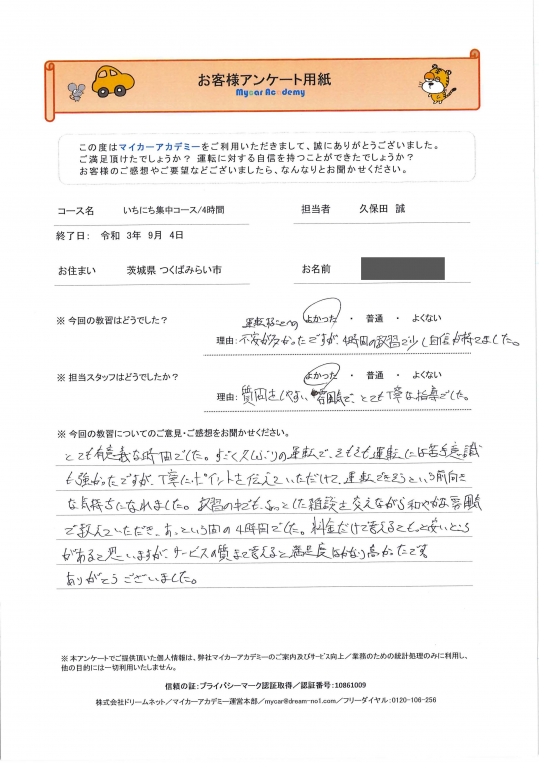 お客様アンケート用紙
Mycar Academy
この度はマイカーアカデミーをご利用いただきまして、誠にありがとうございました。
ご満足頂けたでしょうか? 運転に対する自信を持つことができたでしょうか?
お客様のご感想やご要望などございましたら、なんなりとお聞かせください。
コース名 いちにち集中コース/4時間 担当者 久保田 誠
終了日: 令和 3年 9月 4日
お住まい 茨城県 つくばみらい市 お名前
※ 今回の教習はどうでした? よかった ・ 普通 ・ よくない
運転することへの
理由: 不安が大きかったですが、4時間の教習で少し自信が持てました。
※ 担当スタッフはどうでしたか? よかった ・ 普通 ・ よくない
理由: 質問もしやすい雰囲気で、とても丁寧な指導でした。
※ 今回の教習についてのご意見・ご感想をお聞かせください。
とても有意義な時間でした。すごく久しぶりの運転で、そもそも運転には苦手意識
も強かったですが、丁寧にポイントを伝えていただけて、運転できそうという前向き
な気持ちになれました。教習の中でも、ちょっとした雑談も交えながら和やかな雰囲気
で教えていただき、あっという間の4時間でした。料金だけで考えるともっと安いところ
があると思いますが、サービスの質まで考えると満足度はかなり高かったです
ありがとうございました。
※ 本アンケートでご提供頂いた個人情報は、弊社マイカーアカデミーのご案内及びサービス向上/業務のための統計処理のみに利用し、
他の目的には一切利用いたしません。
信頼の証:プライバシーマーク認証取得/認証番号:10861009
株式会社ドリームネット/マイカーアカデミー運営本部/mycar@dream-no1.com/フリーダイヤル:0120-106-256